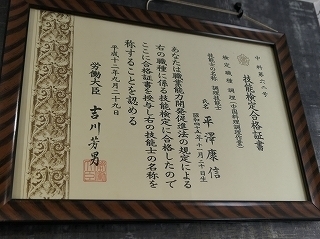 中料第六二号
技能検定合格証書
検定職種 調理(中国料理調理作業)
技能士の名称 調理技能士
氏名 平澤康信
昭和四十五年十一月二十日生
あなたは職業能力開発促進法の規定による
右の職種に係る技能検定に合格したので
ここに合格証書を授与し右の技能士の名称を
称することを認める
平成十二年九月二十九日
労働大臣 吉川芳男